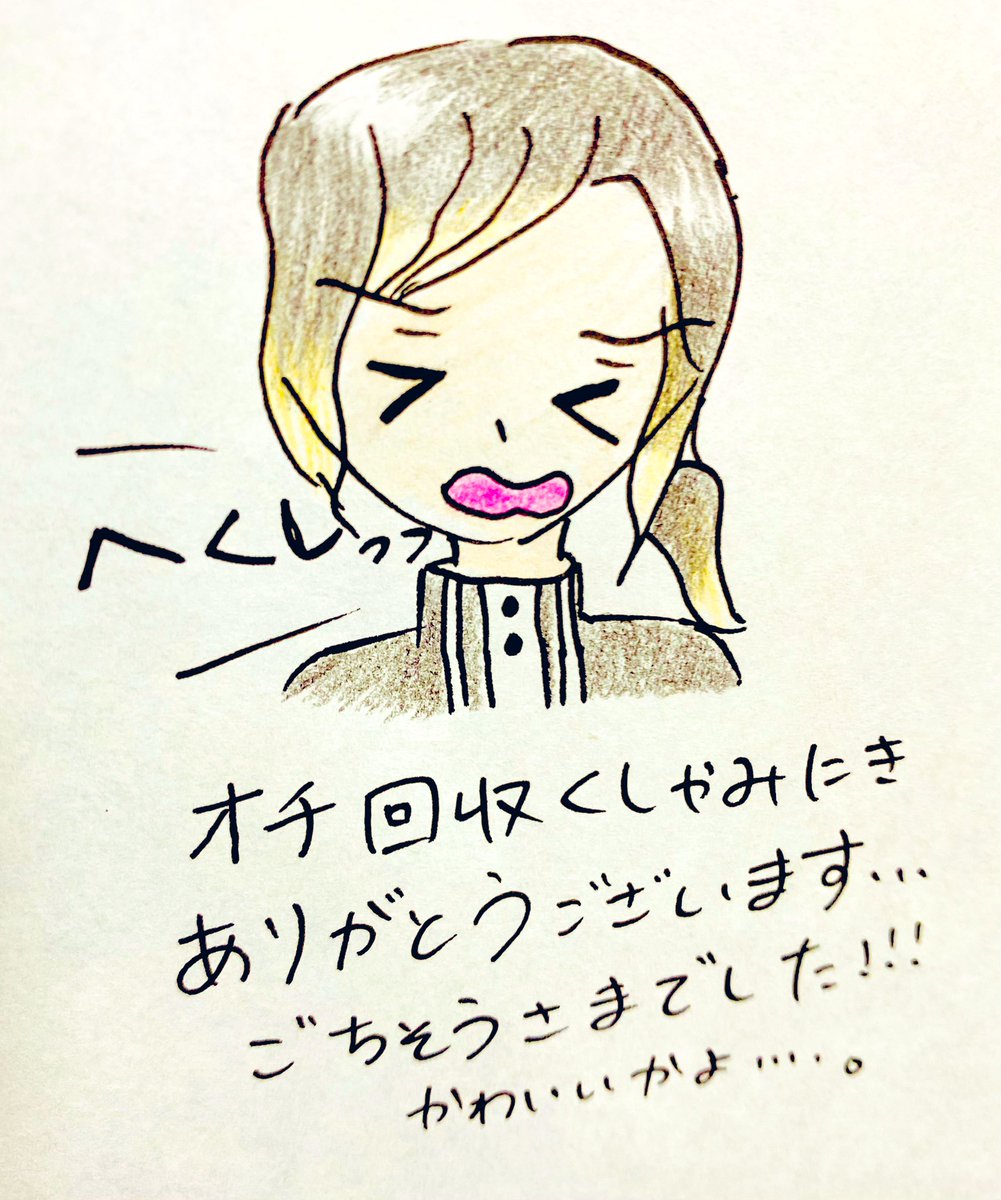 へくしっっ
オチ回収くしゃみにき
ありがとうございます…
ごちそうさまでした!!!
かわいいかよ….。